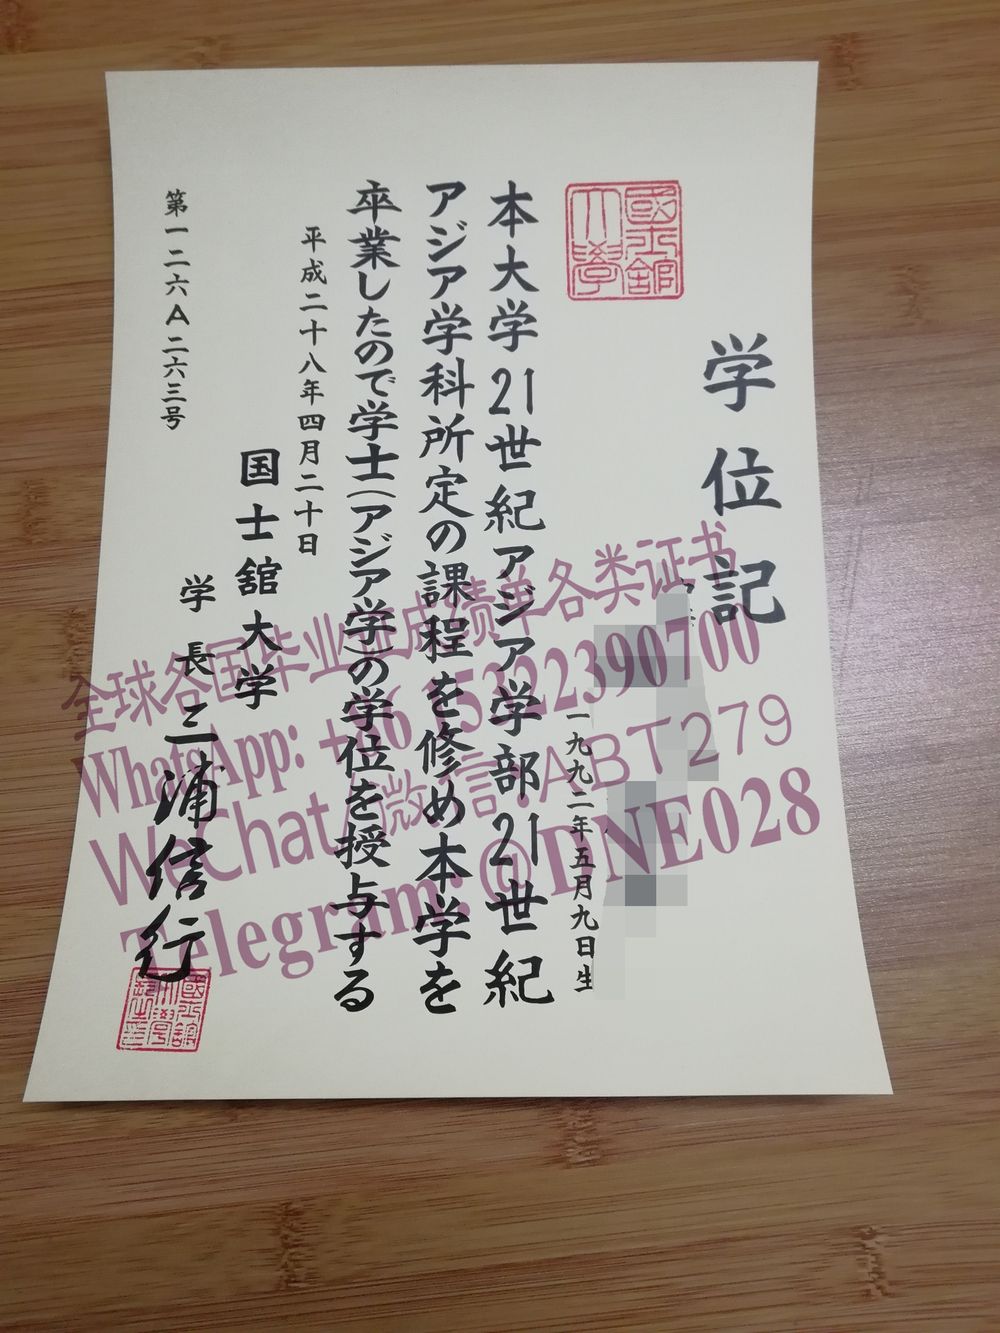 学位記
一九九二年五月九日生
本大学21世紀アジア学部21世紀
アジア学科所定の課程を修め本学を
卒業したので学士(アジア学)の学位を授与する
平成二十八年四月二十日
国士舘大学
学長 三浦信行
第一二六A二六三号
國士舘大學
全球各国毕业证成绩单各类证书
WhatsApp: +86 15322390700
WeChat/微信:ABT279
Telegram: @DNE028